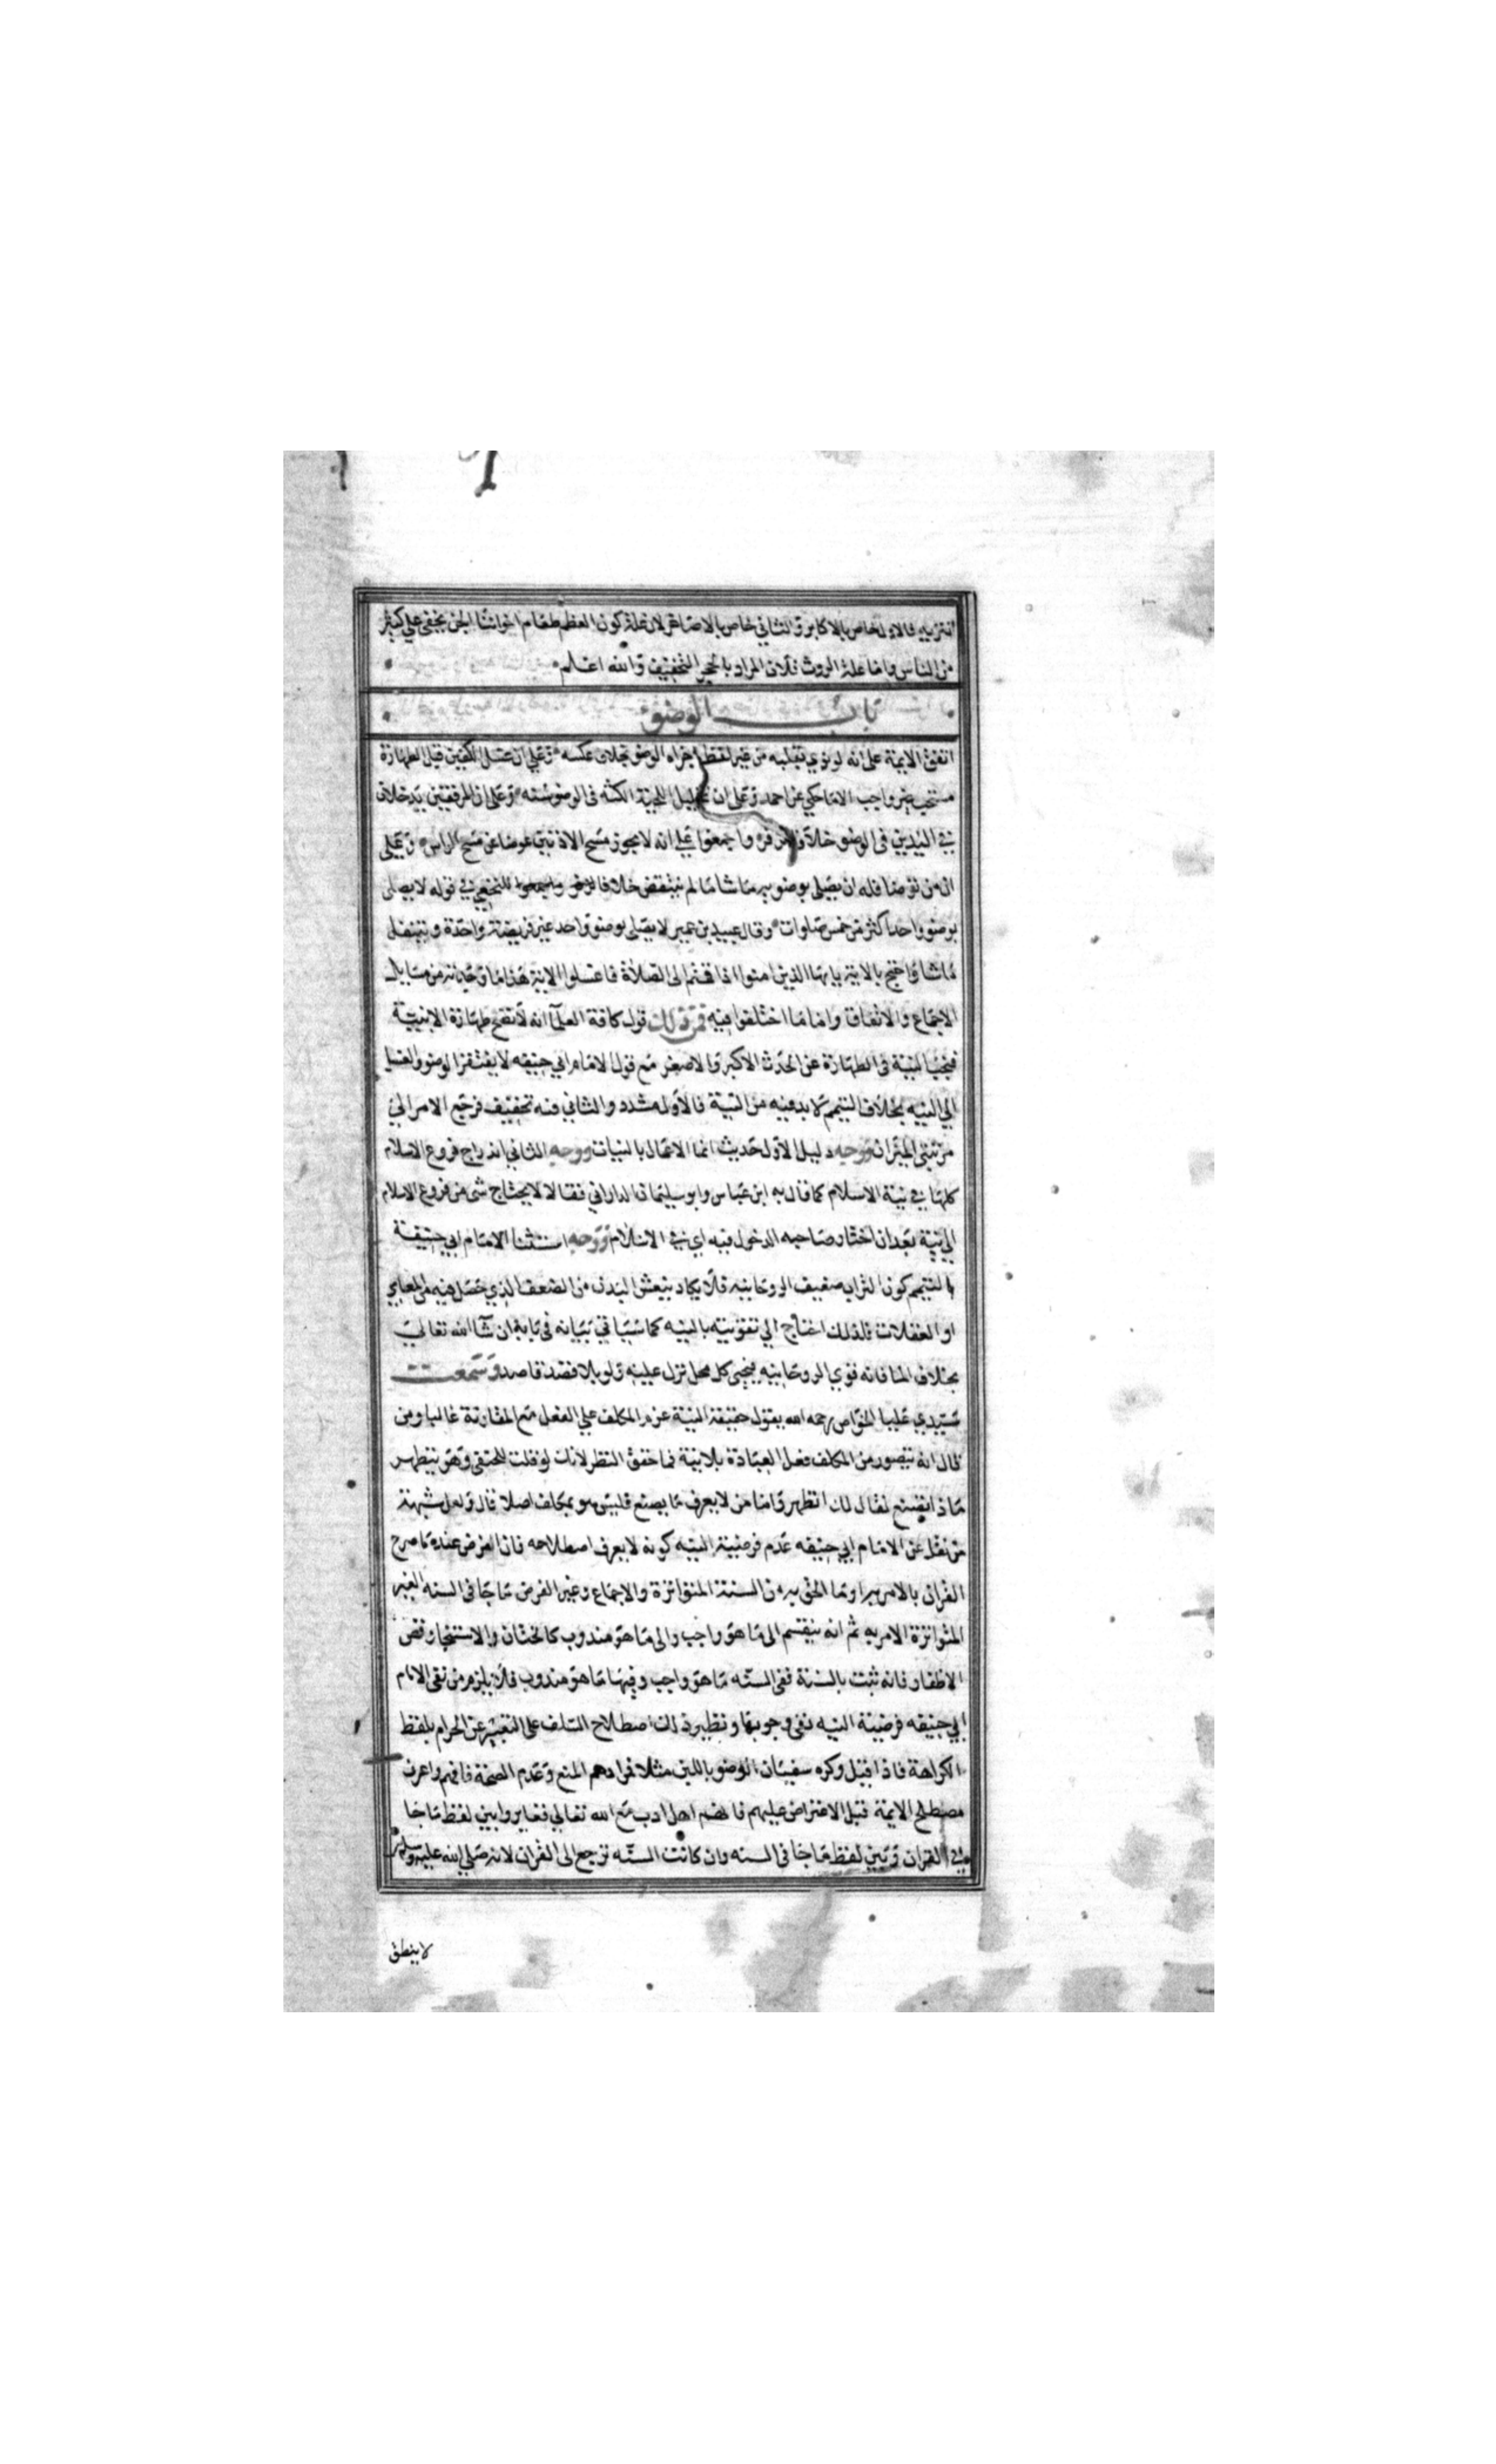 التنزيه فالاول خاص بالاكابر والثاني خاص بالاصاغر لان علة كون العظم طعام اخواننا الجن يخفى علي كثير
من الناس واما علة الروث فلان المراد بالحجر التخفيف والله اعلم
باب الوضوء
اتفق الايمة على انه لو نوي بقلبه من غير لفظ اجزاه الوضو بخلاف عكسه وعلي ان غسل الكفين قبل الطهارة
مستحب غير واجب الا ما حكي عن احمد وعلى ان تخليل اللحية الكثه في الوضو سنة وعلى ان المرفقين يدخلان
في اليدين في الوضو خلافا لزفر واجمعوا علي انه لا يجوز مسح الاذنين عوضا عن مسح الراس وعلى
ان من توضا فله ان يصلي بوضويه ما شا ما لم ينتقض خلافا للنخعي في قوله لا يصلى
بوضو واحد اكثر من خمس صلوات وقال عبيد بن عمير لا يصلى بوضو واحد غير فريضة واحدة ويتنفل
ما شا واحتج بالاية يايها الذين امنوا اذا قمتم الى الصلاة فاغسلوا الاية هذا ما وجدته من مسايل
الاجماع والاتفاق واما ما اختلفوا فيه فمن ذلك قول كافة العلمآ انه لا تصح طهارة الا بنية
فتجب النية في الطهارة عن الحدث الاكبر والاصغر مع قول الامام ابي حنيفه لا يفتقر الوضو والغسل
الي النيه بخلاف التيمم لا بد فيه من النية فالاول مشدد والثاني فيه تخفيف فرجع الامر الي
مرتبتي الميزان ووجه دليل الاول حديث انما الاعمال بالنيات ووجه الثاني اندراج فروع الاسلام
كلها في نية الاسلام كما قال به ابن عباس وابو سليمان الداراني فقالا لا يحتاج شي من فروع الاسلام
الي نية بعد ان اختار صاحبه الدخول فيه اي في الاسلام ووجه استثنا الامام ابي حنيفة
التيمم كون التراب ضعيف الروحانيه فلا يكاد ينعش البدن من الضعف الذي حصل فيه من المعاصي
او الغفلات فلذلك احتاج الي تقويته بالنيه كما سياتي بيانه في بابه ان شآ الله تعالي
بخلاف الما فانه قوي الروحانيه فيحيى كل محل نزل عليه ولو بلا قصد قاصد وسمعت
سيدي عليا الخواص رحمه الله يقول حقيقة النية عزم المكلف علي الفعل مع المقارنة غالبا ومن
قال انه يتصور من المكلف فعل العبادة بلا نية فما حقق النظر لانك لو قلت للحنفي وهو يتطهر
ماذا تصنع لقال لك اتطهر واما من لا يعرف ما يصنع فليس هو بمكلف اصلا قال ولعل شبهة
من نقل عن الامام ابي حنيفه عدم فرضية النيه كونه لا يعرف اصطلاحه فان الفرض عنده ما صرح
القران بالامر به او ما الحق به من السنة المتواترة والاجماع وغير الفرض ما جا في السنه الغير
المتواترة الامر به ثم انه ينقسم الى ما هو واجب والى ما هو مندوب كالختان والاستنجا وقص
الاظفار فانه ثبت بالسنة ففى السنه ما هو واجب وفيها ما هو مندوب فلا يلزم من نفى الامام
ابي حنيفه فرضية النيه نفى وجوبها ونظير ذلك اصطلاح السلف على التعبير عن الحرام بلفظ
الكراهة فاذا قيل وكره سفيان الوضو باللبن مثلا فمرادهم المنع وعدم الصحة فافهم واعرف
مصطلح الايمة قبل الاعتراض عليهم فانهم اهل ادب مع الله تعالي فغايروا بين لفظ ما جا
في القران وبين لفظ ما جا في السنه وان كانت السنه ترجع الى القران لانه صلي الله عليه وسلم
لا ينطق